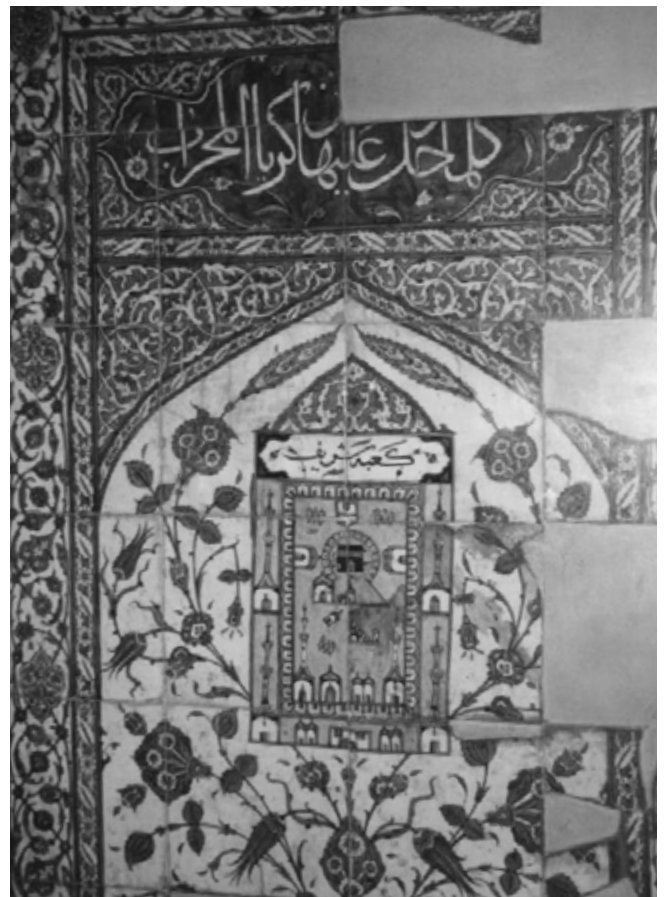 كلما دخل عليها زكريا المحراب
كعبه شريف